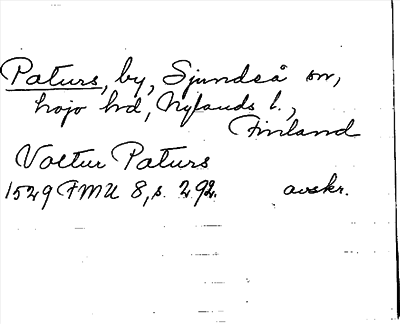 Paturs, by, Sjundeå sn,
Lojo hd, Nylands l.,
Finland
Voltur Paturs
1529 FMU 8, s. 292. avskr.